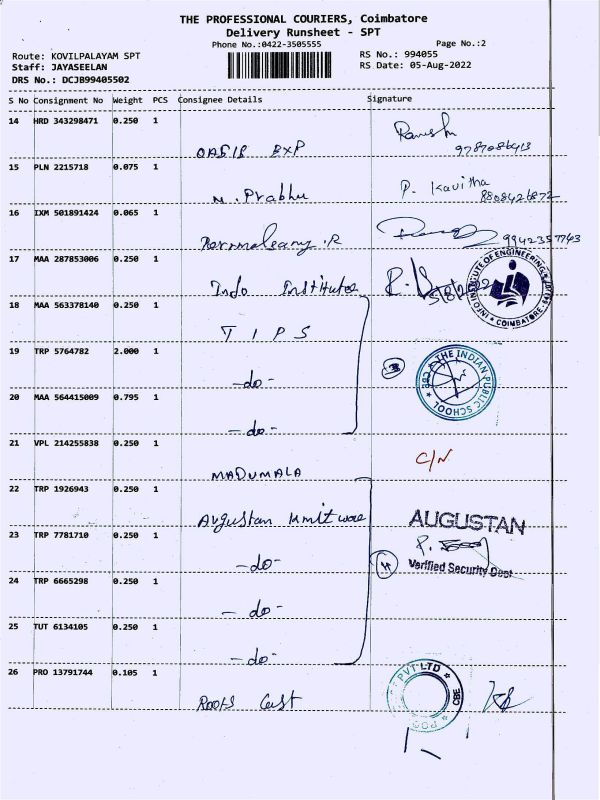 THE PROFESSIONAL COURIERS, Coimbatore
Delivery Runsheet - SPT
Phone No.:0422-3505555 Page No.:2
Route: KOVILPALAYAM SPT RS No.: 994055
Staff: JAYASEELAN RS Date: 05-Aug-2022
DRS No.: DCJB99405502
S No Consignment No Weight PCS Consignee Details Signature
14 HRD 343298471 0.250 1
OASIS EXP Ramesh
9787086413
15 PLN 2215718 0.075 1
M. Prabhu P. Kavitha
8808426872
16 IXM 501891424 0.065 1
9942357743
17 MAA 287853006 0.250 1
Indo Institutes 5/8/2022
INFO INSTITUTE OF ENGINEERING COIMBATORE
18 MAA 563378140 0.250 1
TIPS
19 TRP 5764782 2.000 1
-do-
THE INDIAN PUBLIC SCHOOL CBE
20 MAA 564415009 0.795 1
-do-
21 VPL 214255838 0.250 1
MADUMALA C/N
22 TRP 1926943 0.250 1
Augustan Knitwae AUGUSTAN
23 TRP 7781710 0.250 1
-do- Verified Security Dept
24 TRP 6665298 0.250 1
-do-
25 TUT 6134105 0.250 1
-do-
26 PRO 13791744 0.105 1
Roots Cast PVT LTD CBE